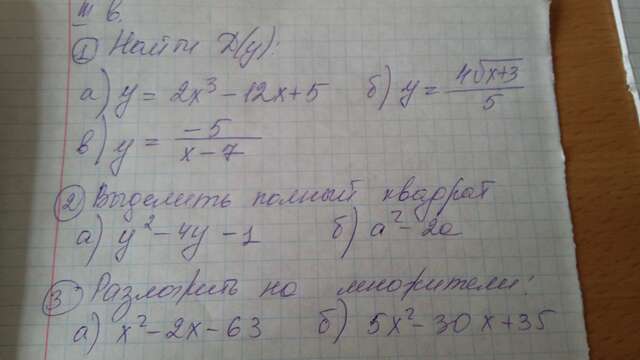 III в.
① Найти D(y):
а) y = 2x³ - 12x + 5 б) y = 4√x+3 / 5
в) y = -5 / x - 7
② Выделить полный квадрат
а) y² - 4y - 1 б) a² - 2a
③ Разложить на множители:
а) x² - 2x - 63 б) 5x² - 30x + 35